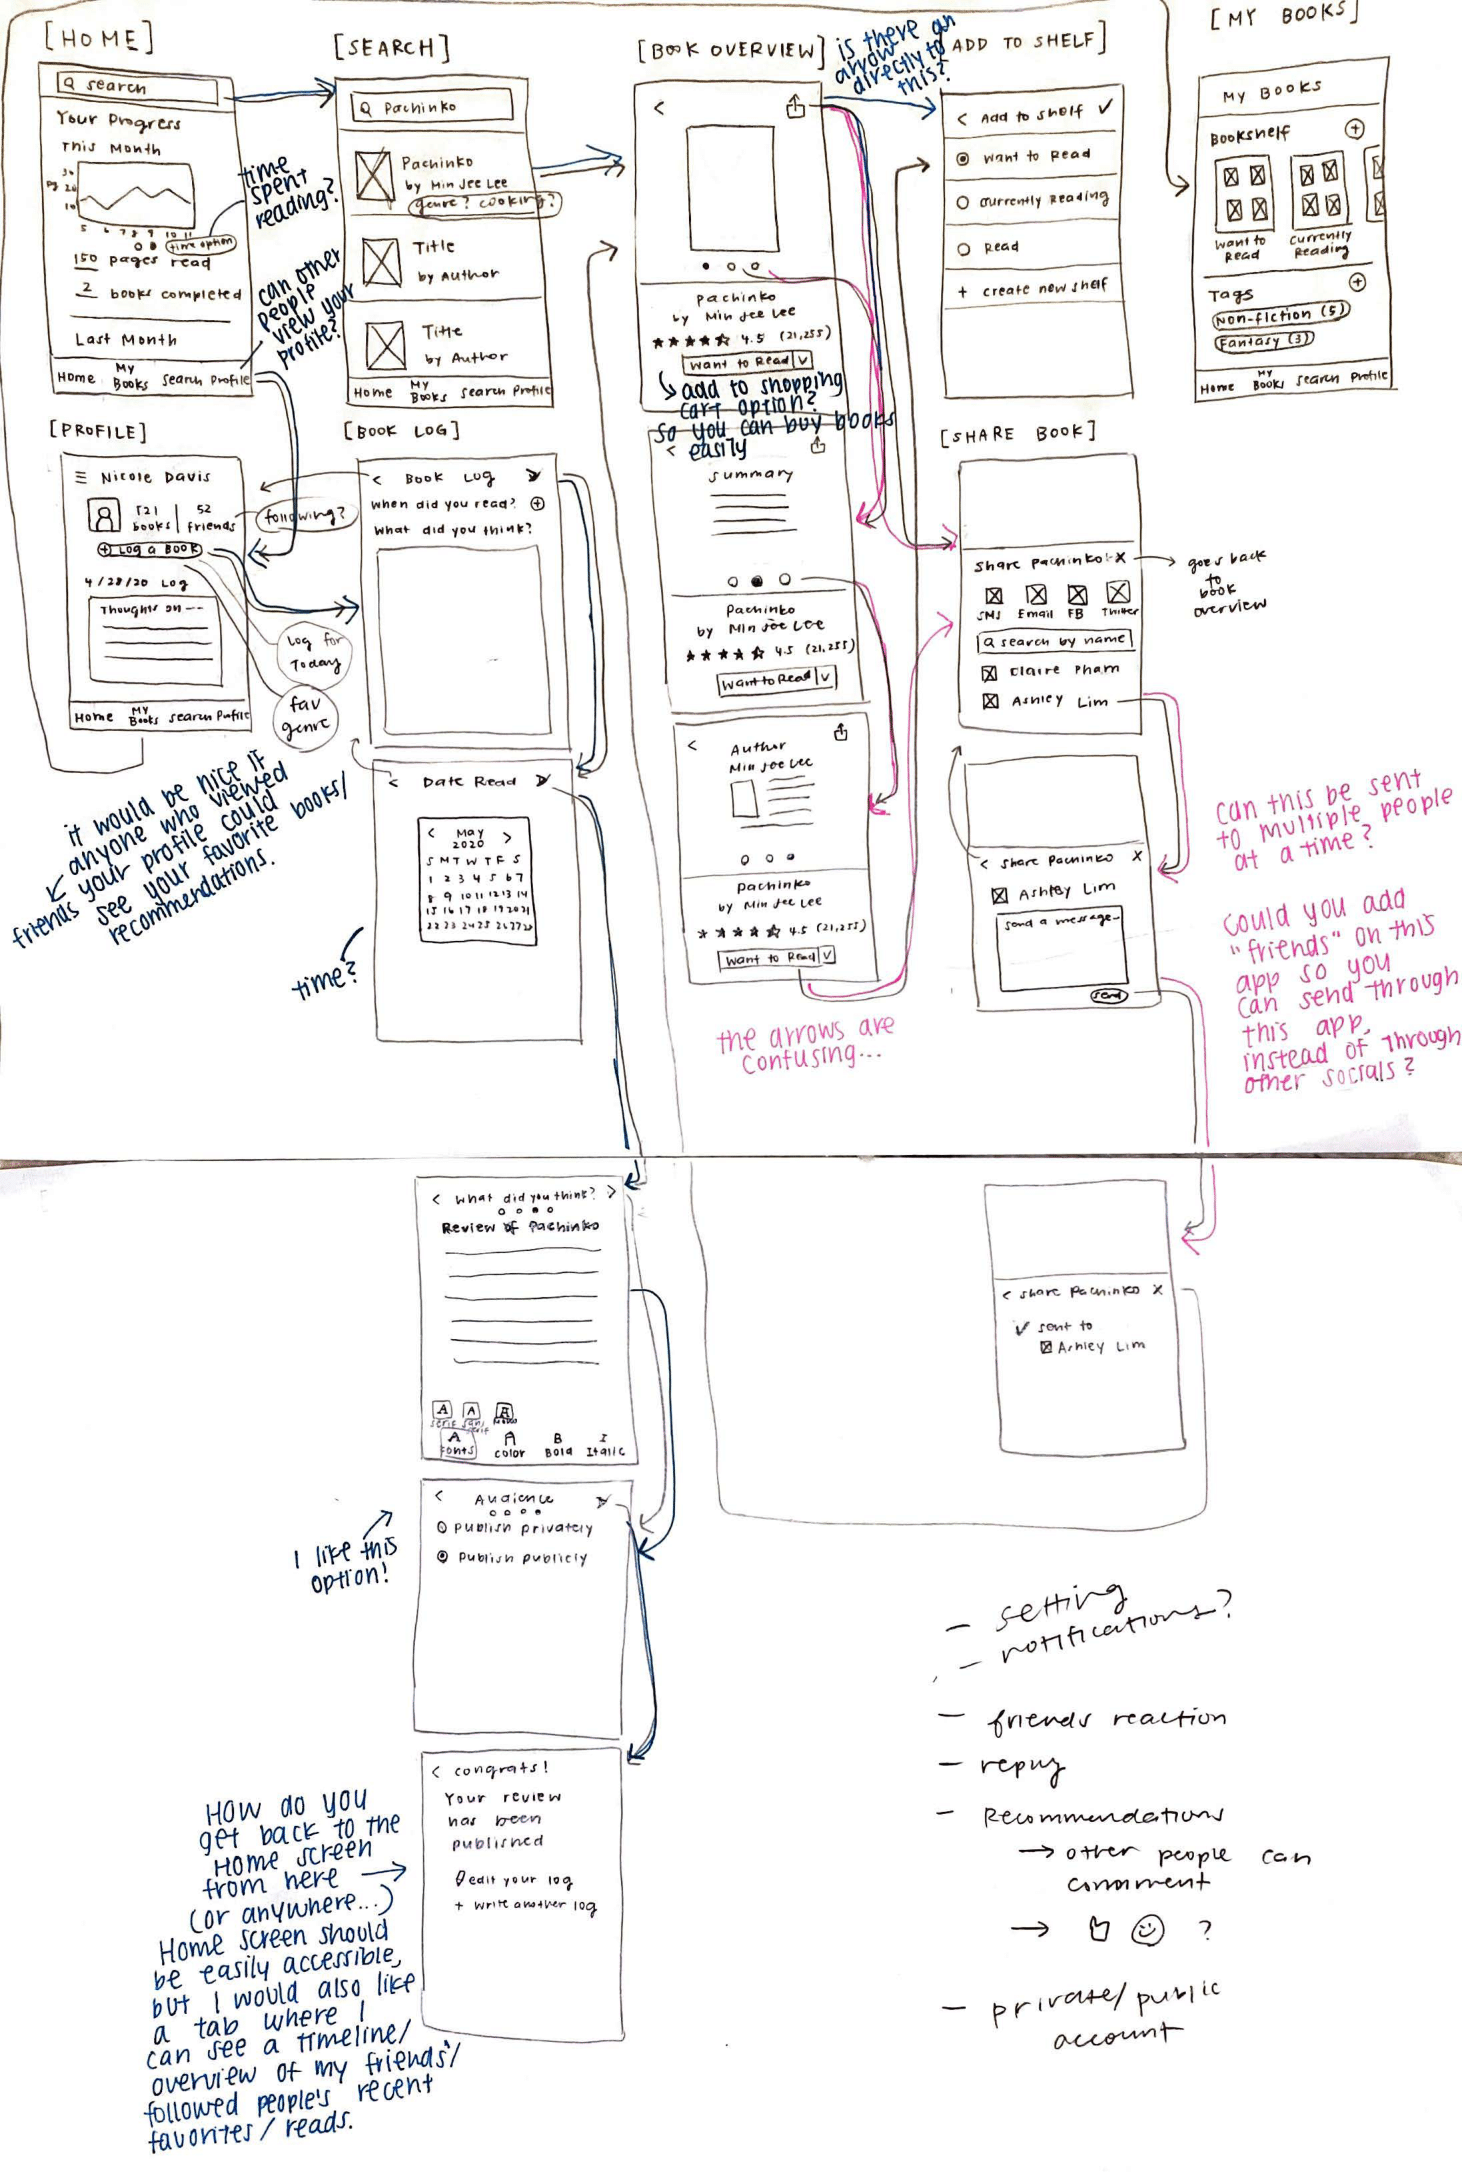 [HOME]
Q search
Your Progress
This Month
30
pg 20
10
5 6 7 8 9 10 11
time option
150 pages read
2 books completed
Last Month
Home My Books Search Profile
time
spent
reading?
can other
people
view your
profile?
[SEARCH]
Q Pachinko
Pachinko
by Min Jee Lee
genre? cooking?
Title
by Author
Title
by Author
Home My Books Search Profile
[BOOK OVERVIEW]
<
Pachinko
by Min Jee Lee
4.5 (21,255)
Want to Read V
add to shopping
cart option?
so you can buy books
easily
is there an
arrow
directly to
this?
ADD TO SHELF]
< Add to shelf ✓
Want to Read
Currently Reading
Read
+ create new shelf
[MY BOOKS]
My Books
Bookshelf +
Want to
Read
Currently
Reading
Tags +
Non-fiction (5)
Fantasy (3)
Home My Books Search Profile
[PROFILE]
☰ Nicole Davis
books
52
friends
following?
+ Log a Book
4/28/20 Log
Thoughts on --
Home My Books Search Profile
Log for
Today
fav
genre
it would be nice if
anyone who viewed
friends your profile could
see your favorite books/
recommendations.
[BOOK LOG]
< Book Log
When did you read? +
What did you think?
< Date Read
< May >
2020
S M T W T F S
1 2 3 4 5 6 7
8 9 10 11 12 13 14
15 16 17 18 19 20 21
22 23 24 25 26 27 28
time?
<
summary
Pachinko
by Min Jee Lee
4.5 (21,255)
Want to Read V
< Author
Min Jee Lee
Pachinko
by Min Jee Lee
4.5 (21,255)
Want to Read V
the arrows are
confusing...
[SHARE BOOK]
Share Pachinko! X
goes back
to
book
overview
SMS Email FB Twitter
Q search by name
Claire Pham
Ashley Lim
< Share Pachinko X
Ashley Lim
send a message-
send
can this be sent
to multiple people
at a time?
could you add
"friends" on this
app so you
can send through
this app,
instead of through
other socials?
< What did you think? >
Review of Pachinko
A A A
serif sans serif
A A B I
Fonts Color Bold Italic
< Audience
Publish privately
Publish publicly
I like this
option!
< congrats!
Your review
has been
published
edit your log
+ write another log
HOW do you
get back to the
Home screen
from here
(or anywhere...)
Home screen should
be easily accessible,
but I would also like
a tab where I
can see a timeline/
overview of my friends'/
followed people's recent
favorites/reads.
< Share Pachinko X
✓ sent to
Ashley Lim
- setting
- notifications?
- friends reaction
- reply
- Recommendations
→ other people can
comment
→ ?
- private/public
account